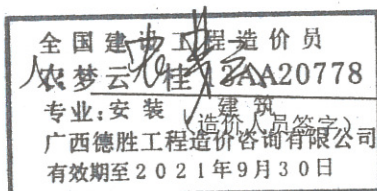 全国建设工程造价员
人:
农梦云 桂13AA20778
专业:安装 建筑
(造价人员签字)
广西德胜工程造价咨询有限公司
有效期至2021年9月30日